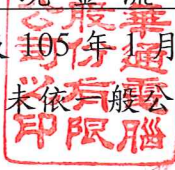 105年1月
未依一般公
華通電腦
股份有限
公司之印